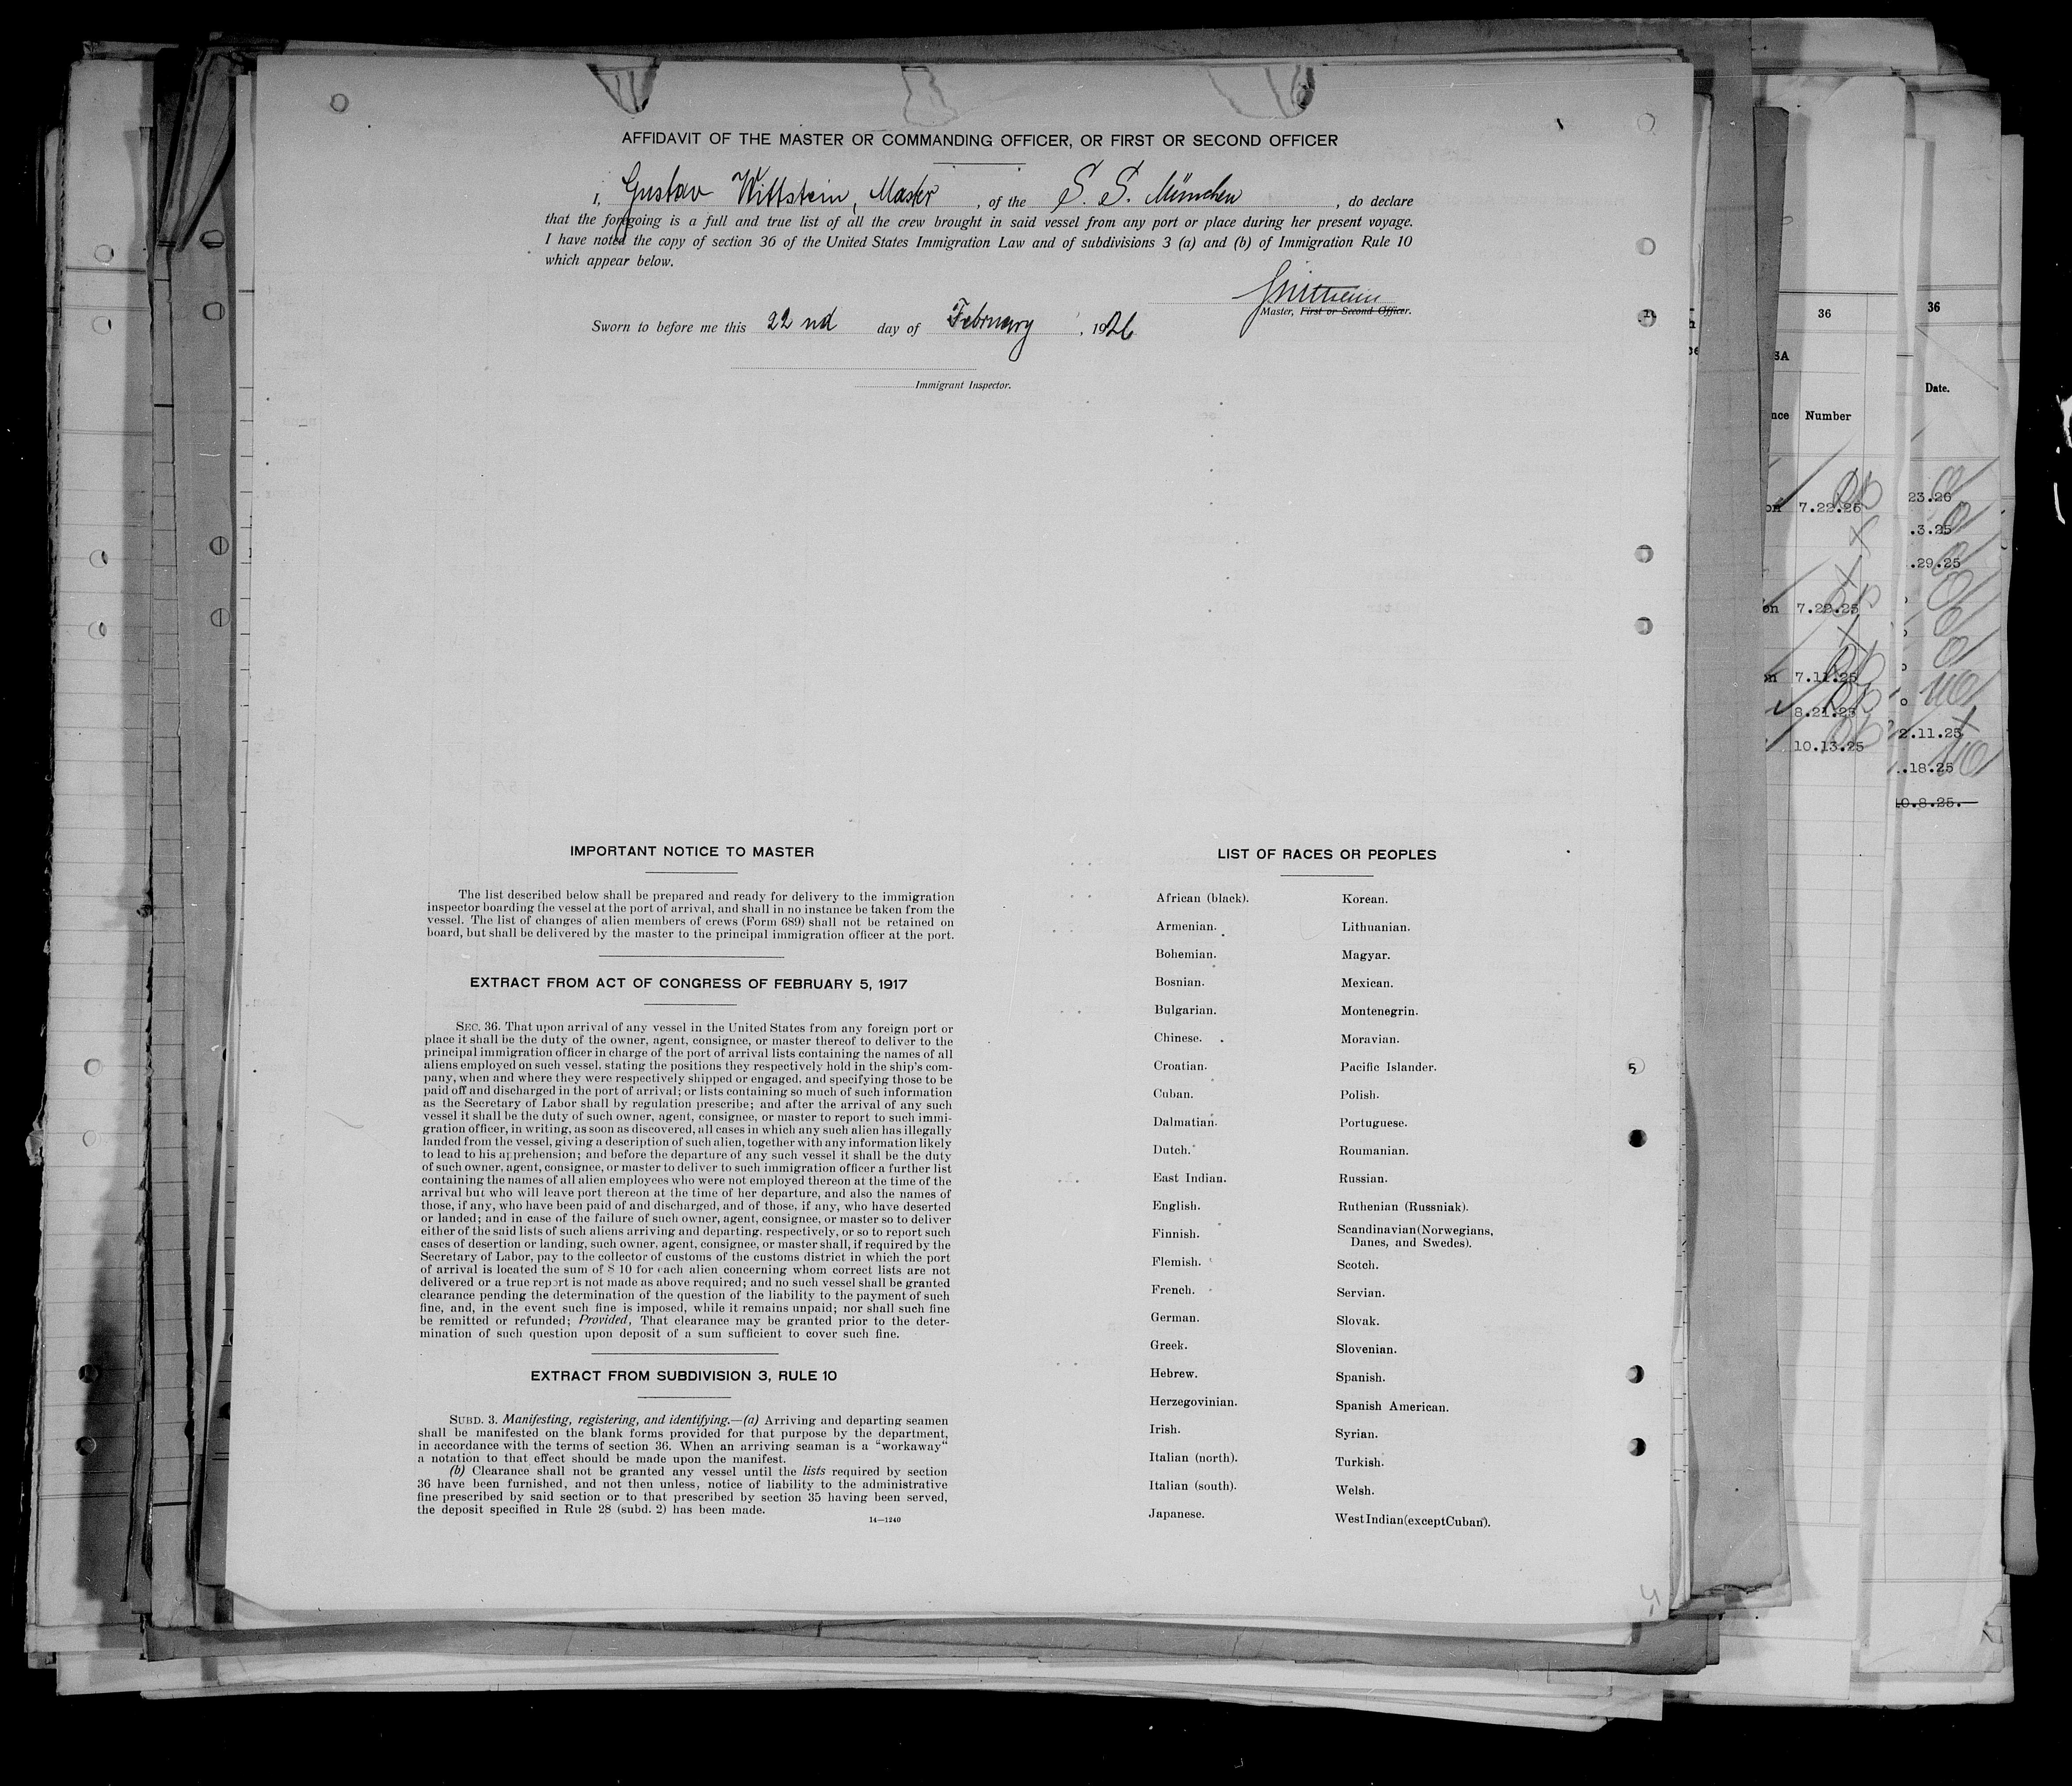 AFFIDAVIT OF THE MASTER OR COMMANDING OFFICER, OR FIRST OR SECOND OFFICER
I, Gustav Wittstein, Master, of the S. S. München, do declare
that the foregoing is a full and true list of all the crew brought in said vessel from any port or place during her present voyage.
I have noted the copy of section 36 of the United States Immigration Law and of subdivisions 3 (a) and (b) of Immigration Rule 10
which appear below.
Master, First or Second Officer.
Sworn to before me this 22nd day of February, 1926
Immigrant Inspector.
IMPORTANT NOTICE TO MASTER
The list described below shall be prepared and ready for delivery to the immigration
inspector boarding the vessel at the port of arrival, and shall in no instance be taken from the
vessel. The list of changes of alien members of crews (Form 689) shall not be retained on
board, but shall be delivered by the master to the principal immigration officer at the port.
EXTRACT FROM ACT OF CONGRESS OF FEBRUARY 5, 1917
SEC. 36. That upon arrival of any vessel in the United States from any foreign port or
place it shall be the duty of the owner, agent, consignee, or master thereof to deliver to the
principal immigration officer in charge of the port of arrival lists containing the names of all
aliens employed on such vessel, stating the positions they respectively hold in the ship's com-
pany, when and where they were respectively shipped or engaged, and specifying those to be
paid off and discharged in the port of arrival; or lists containing so much of such information
as the Secretary of Labor shall by regulation prescribe; and after the arrival of any such
vessel it shall be the duty of such owner, agent, consignee, or master to report to such immi-
gration officer, in writing, as soon as discovered, all cases in which any such alien has illegally
landed from the vessel, giving a description of such alien, together with any information likely
to lead to his apprehension; and before the departure of any such vessel it shall be the duty
of such owner, agent, consignee, or master to deliver to such immigration officer a further list
containing the names of all alien employees who were not employed thereon at the time of the
arrival but who will leave port thereon at the time of her departure, and also the names of
those, if any, who have been paid of and discharged, and of those, if any, who have deserted
or landed; and in case of the failure of such owner, agent, consignee, or master so to deliver
either of the said lists of such aliens arriving and departing, respectively, or so to report such
cases of desertion or landing, such owner, agent, consignee, or master shall, if required by the
Secretary of Labor, pay to the collector of customs of the customs district in which the port
of arrival is located the sum of $ 10 for each alien concerning whom correct lists are not
delivered or a true report is not made as above required; and no such vessel shall be granted
clearance pending the determination of the question of the liability to the payment of such
fine, and, in the event such fine is imposed, while it remains unpaid; nor shall such fine
be remitted or refunded; Provided, That clearance may be granted prior to the deter-
mination of such question upon deposit of a sum sufficient to cover such fine.
EXTRACT FROM SUBDIVISION 3, RULE 10
SUBD. 3. Manifesting, registering, and identifying.—(a) Arriving and departing seamen
shall be manifested on the blank forms provided for that purpose by the department,
in accordance with the terms of section 36. When an arriving seaman is a "workaway"
a notation to that effect should be made upon the manifest.
(b) Clearance shall not be granted any vessel until the lists required by section
36 have been furnished, and not then unless, notice of liability to the administrative
fine prescribed by said section or to that prescribed by section 35 having been served,
the deposit specified in Rule 28 (subd. 2) has been made.
14—1240
LIST OF RACES OR PEOPLES
African (black).
Armenian.
Bohemian.
Bosnian.
Bulgarian.
Chinese.
Croatian.
Cuban.
Dalmatian.
Dutch.
East Indian.
English.
Finnish.
Flemish.
French.
German.
Greek.
Hebrew.
Herzegovinian.
Irish.
Italian (north).
Italian (south).
Japanese.
Korean.
Lithuanian.
Magyar.
Mexican.
Montenegrin.
Moravian.
Pacific Islander.
Polish.
Portuguese.
Roumanian.
Russian.
Ruthenian (Russniak).
Scandinavian (Norwegians,
Danes, and Swedes).
Scotch.
Servian.
Slovak.
Slovenian.
Spanish.
Spanish American.
Syrian.
Turkish.
Welsh.
West Indian (except Cuban).
5
36
Number
7.22.26
7.22.25
7.11.25
8.21.25
10.13.25
36
Date.
23.26
.3.25
.29.25
2.11.25
.18.25
10.8.25.